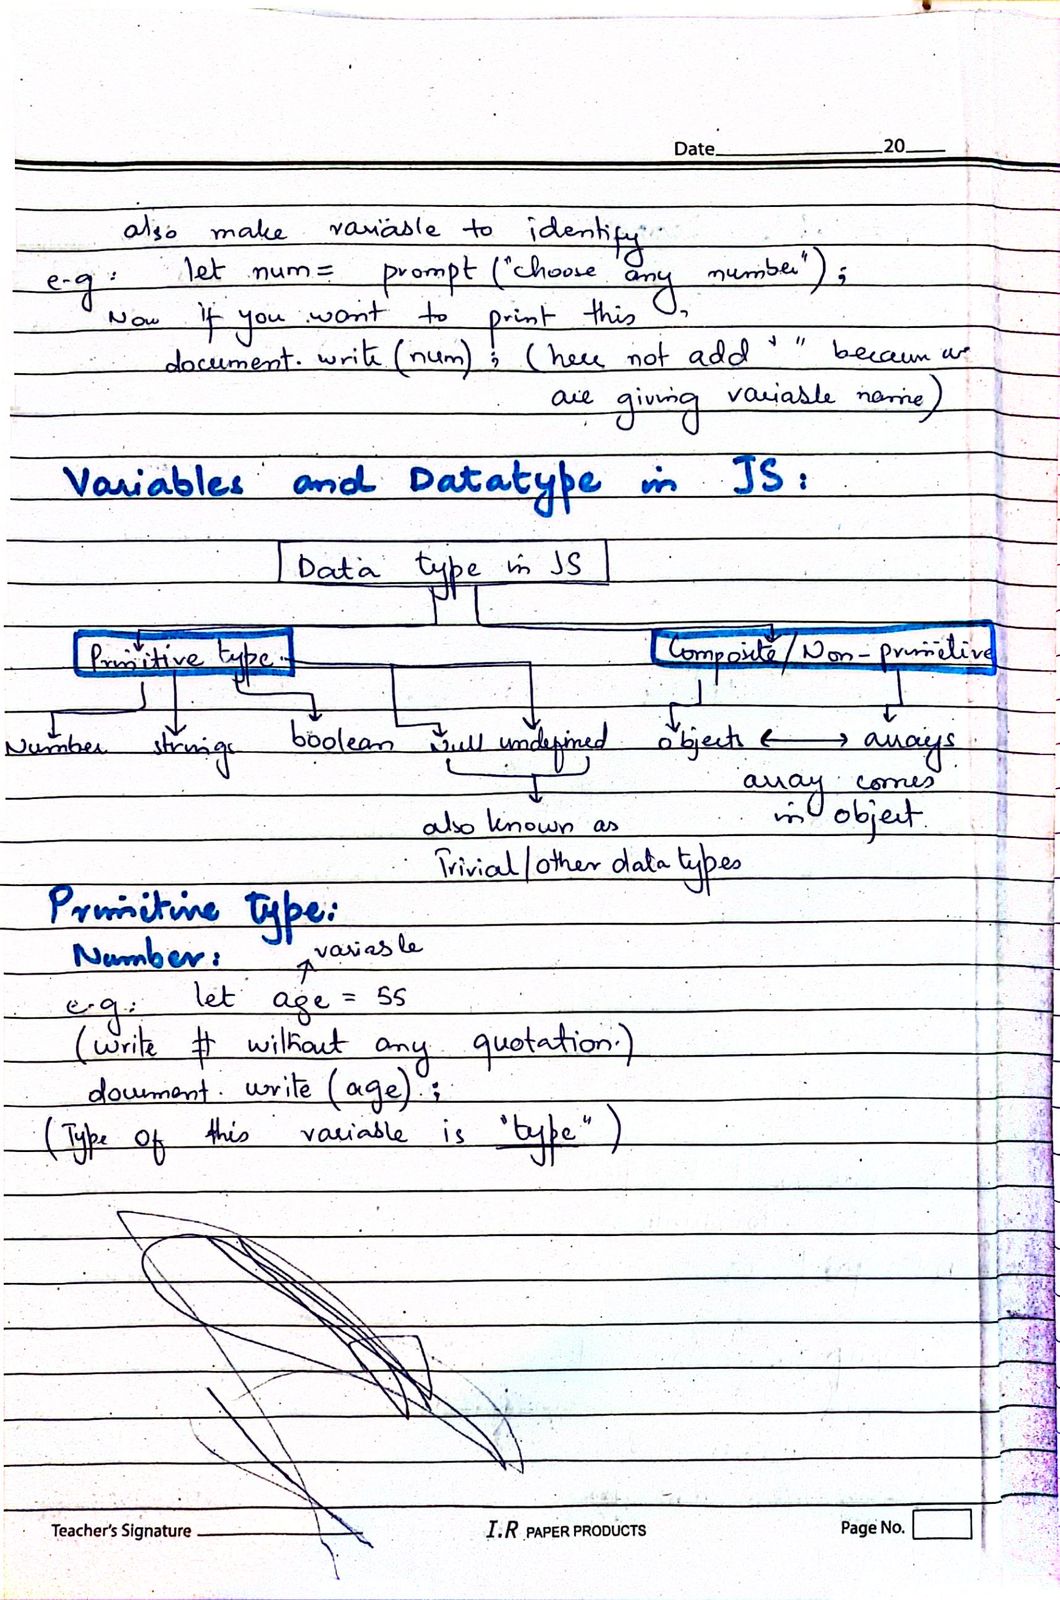 Date 20
also make variable to identify
e-g: let num = prompt ("choose any number");
Now if you want to print this,
document. write (num) ; (here not add " " becaum we
are giving variable name)
Variables and Datatype in JS:
Data type in JS
Primitive type.
Composite/Non-primitive
Number strings boolean Null undefined objects ⟷ arrays
array comes
in object.
also known as
Trivial/other data types
Primitive type:
Number:
variable
e.g: let age = 55
(write # without any quotation.)
document. write (age) ;
(Type of this variable is "type")
Teacher's Signature I.R PAPER PRODUCTS Page No.